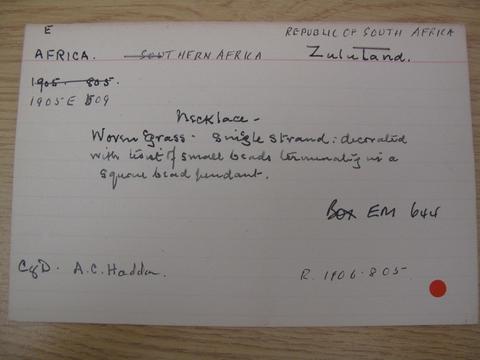 E
REPUBLIC OF SOUTH AFRICA
AFRICA. SOUTHERN AFRICA Zululand.
1905. 805.
1905 E 509
Necklace -
Woven grass. Single strand: decorated
with twist of small beads terminating in a
square bead pendant.
Box EM 644
A.C. Haddon.
R. 1906.805.